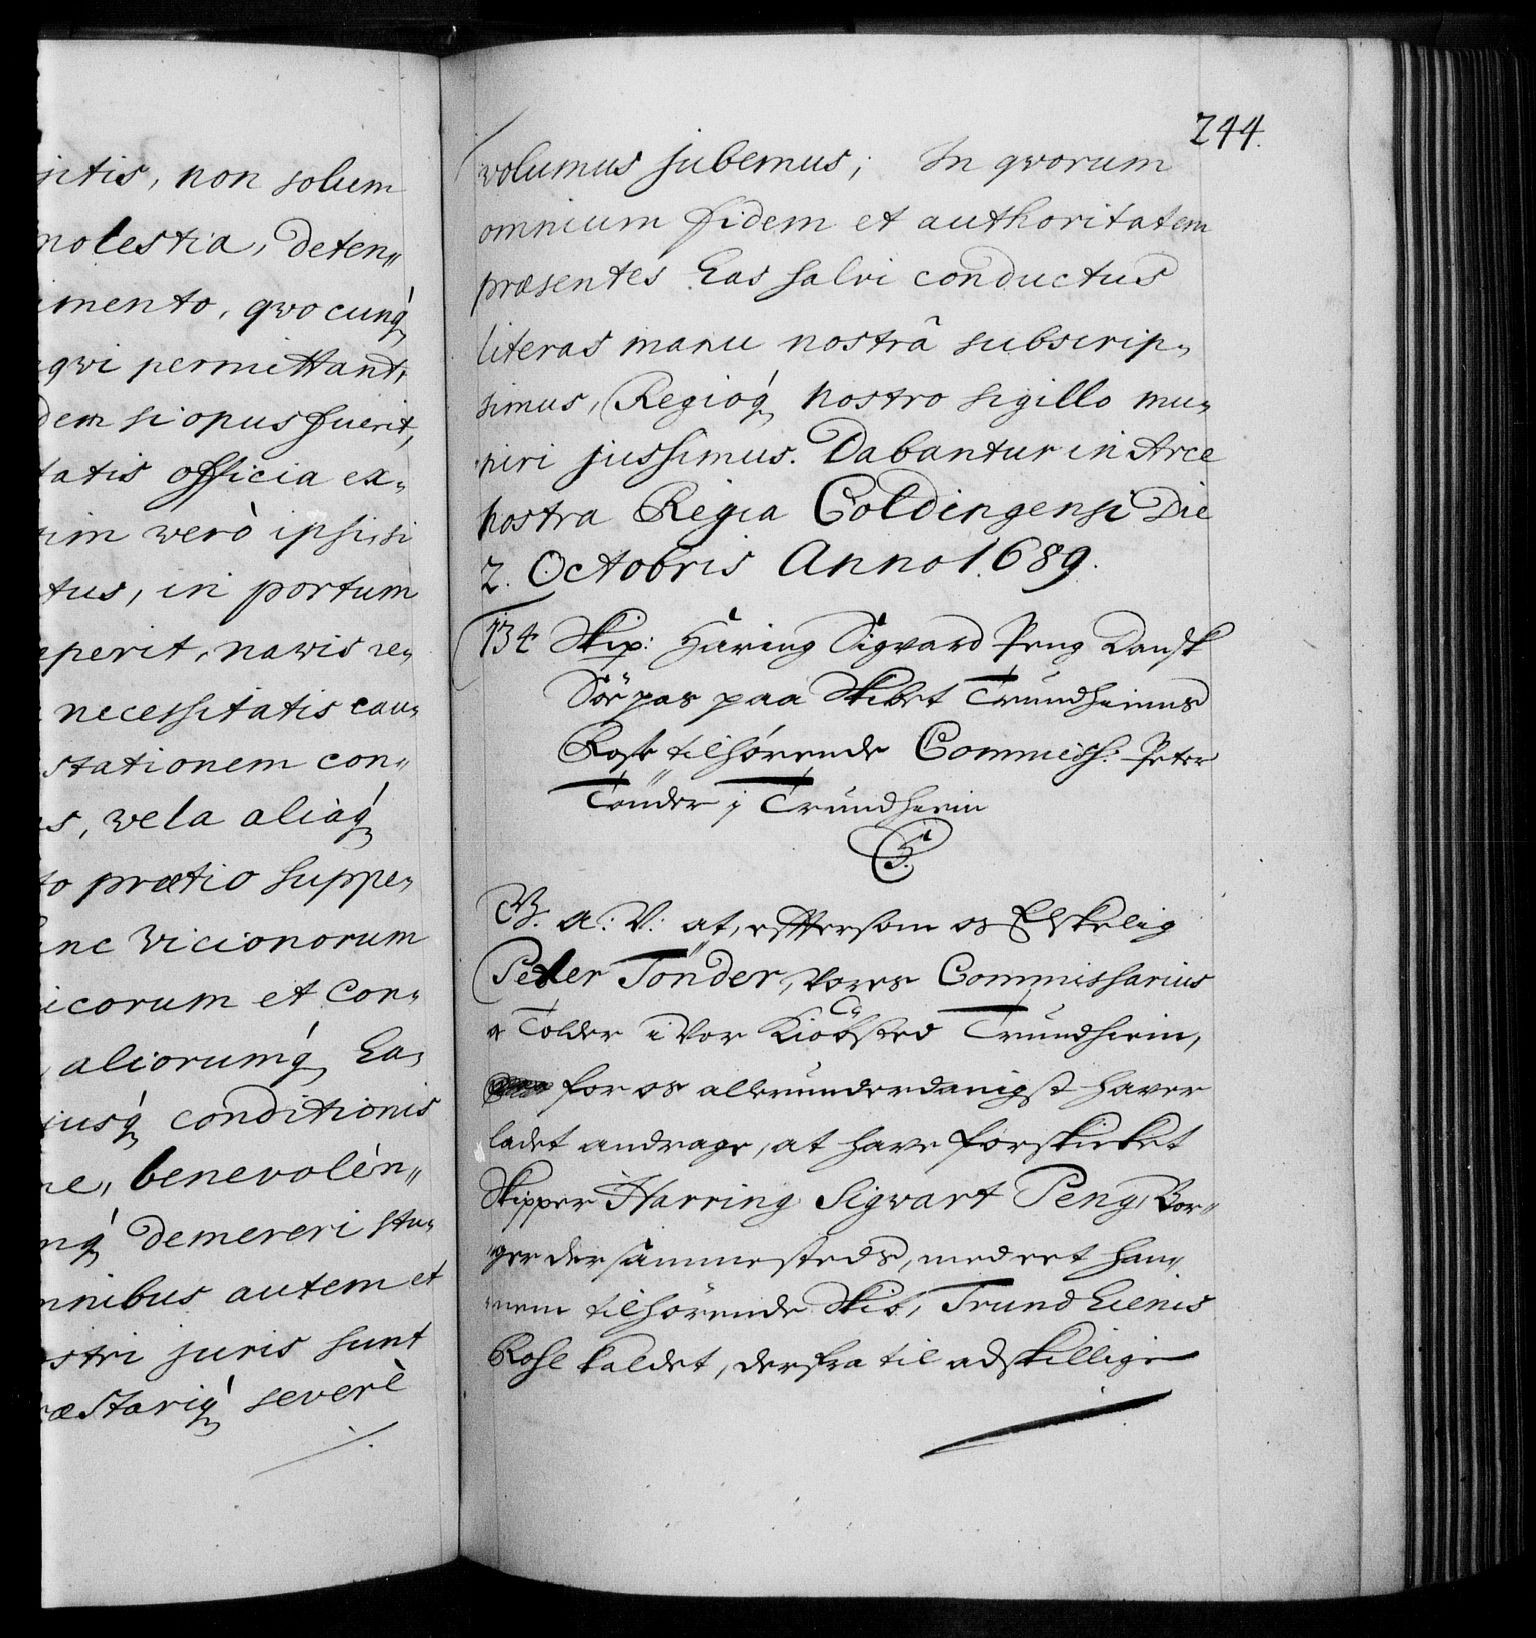 sitis, non solum
molestia, deten„
imento, qvocunq́
qvi permittant,
dem si opus fuerit,
tatis officia ex„
im verò ipsis, si
tus, in portum
perit, navis re„
necessitatis cau„
stationem con„
s, vela aliaq́
to prætio suppe„
nc vicionorum
icorum et con„
aliorumq́ Ea„
usq́ conditionis
ne, benevolén„
nq́ demereri stu„
nibus autem et
stri juris sunt
ræstariq́ severè
244.
volumus jubemus; In qvorum
omnium fidem et authoritatem
præsentes Eas salvi conductus
literas manu nostrâ subscrip„
simus, Regioq́ nostro sigillo mu„
niri jussimus. Dabantur in Arce
nostra Regia Coldingensi Die
2. Octobris Anno 1689.
134 Skip: Haring Sigvard Peng Dansk
Söepas paa Skibet Trundheims
Rose tilhörende Commiss: Peter
Tönder i Trundheim
G. a: V: at, efftersom os Elskelig
Peter Tönder, Vores Commissarius
Tolder i Vor Kiöbsted Trundheim,
for os allerunderdanigst haver
ladet andrage, at have forskicket
Skipper Harring Sigvart Peng, Bor„
ger dersammesteds, med eet han„
nem tilhörende Skib, Trundhiems
Rose kaldet, derfra til adskillige